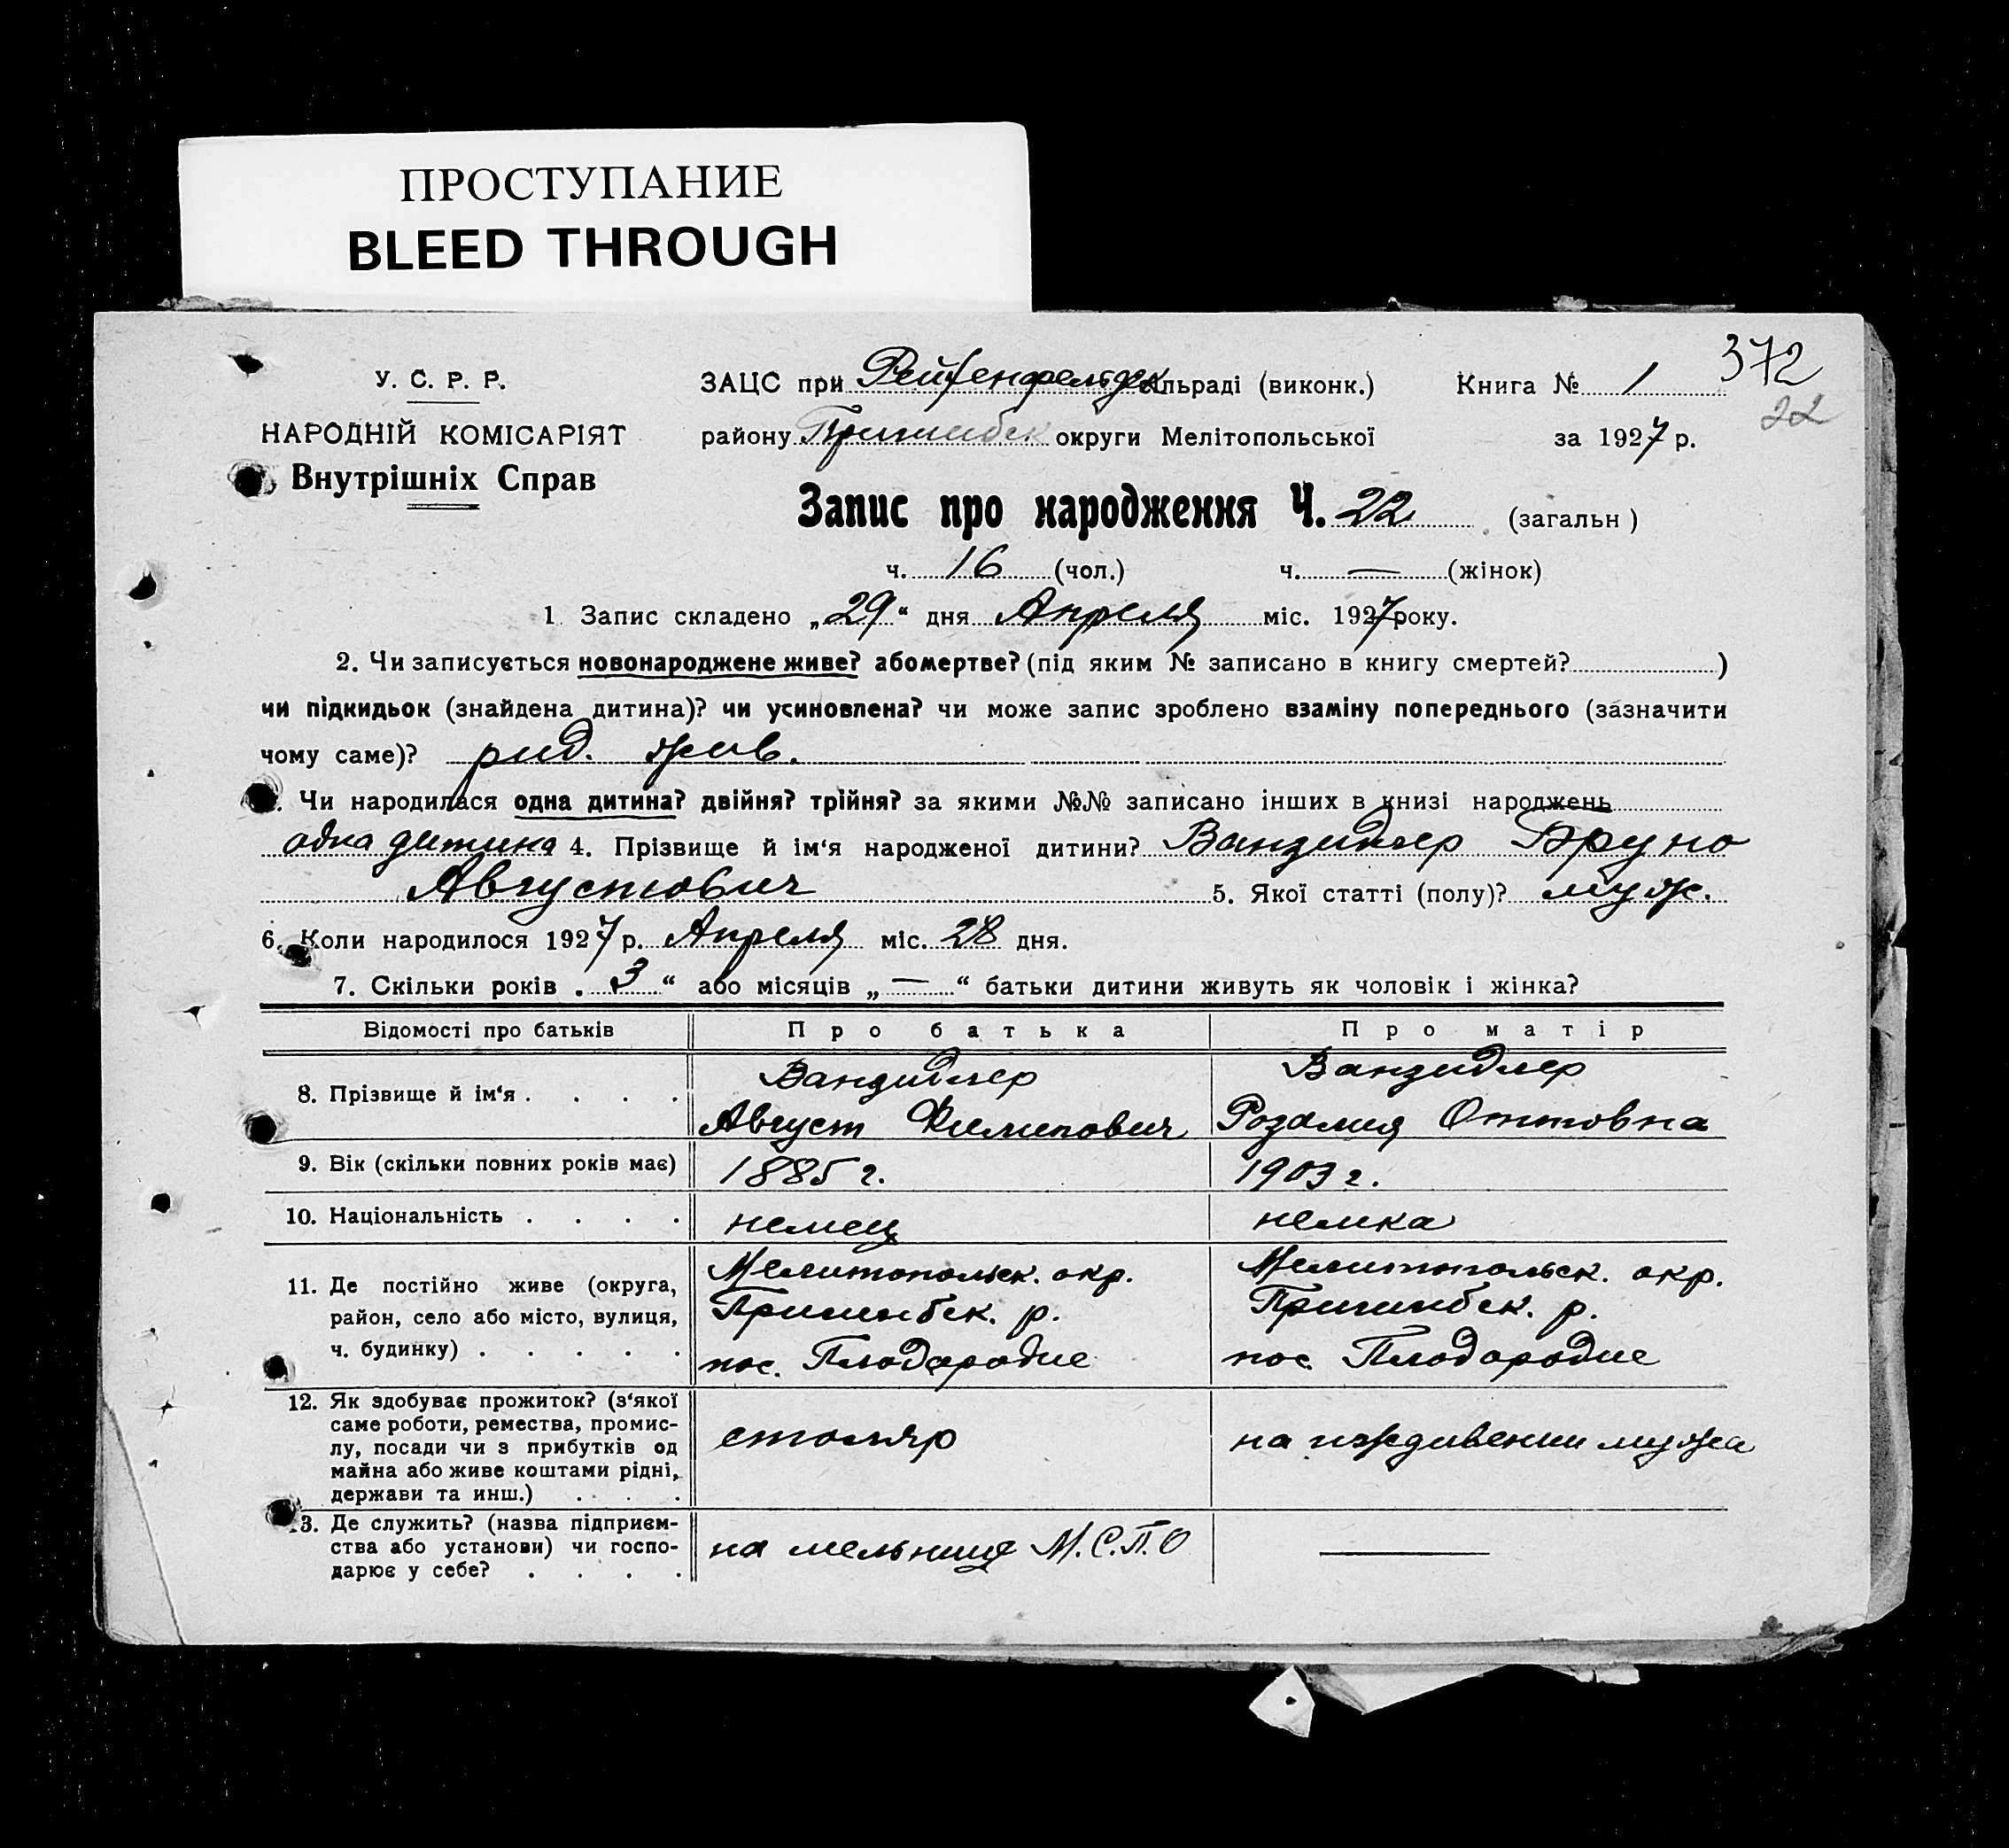 ПРОСТУПАНИЕ
BLEED THROUGH
372
У. С. Р. Р.
ЗАЦС при Рейхенфельдск сільраді (виконк.) Книга № 1
22
НАРОДНІЙ КОМІСАРІЯТ
району Пришибск округи Мелітопольської за 1927 р.
Внутрішніх Справ
Запис про народження Ч. 22 (загальн)
ч. 16 (чол.) ч. — (жінок)
1. Запис складено „29“ дня Апреля міс. 1927 року.
2. Чи записується новонароджене живе? або мертве? (під яким № записано в книгу смертей? )
чи підкидьок (знайдена дитина)? чи усиновлена? чи може запис зроблено взаміну попереднього (зазначити
чому саме)? рид. жив.
. Чи народилася одна дитина? двійня? трійня? за якими №№ записано інших в книзі народжень
одна дитина 4. Прізвище й ім‘я народженої дитини? Вандидлер Бруно
Августович 5. Якої статті (полу)? муж.
6. Коли народилося 1927 р. Апреля міс. 28 дня.
7. Скільки років „3“ або місяців „—“ батьки дитини живуть як чоловік і жінка?
Відомості про батьків Про батька Про матір
8. Прізвище й ім‘я . . . . Вандидлер Вандидлер
Август Филипович Розалия Оттовна
9. Вік (скільки повних років має) 1885 г. 1903 г.
10. Національність . . . . немец немка
11. Де постійно живе (округа, район, село або місто, вулиця, ч. будинку) . . . . .
Мелитопольск. окр. Мелитопольск. окр.
Пришибск. р. Пришибск. р.
пос. Плодородие пос. Плодородие
12. Як здобуває прожиток? (з‘якої
саме роботи, ремества, промис-
лу, посади чи з прибутків од
майна або живе коштами рідні,
держави та инш.) . . . .
столяр на иждивении мужа
13. Де служить? (назва підприєм-
ства або установи) чи госпо-
дарює у себе? . . . .
на мельнице М.С.П.О —